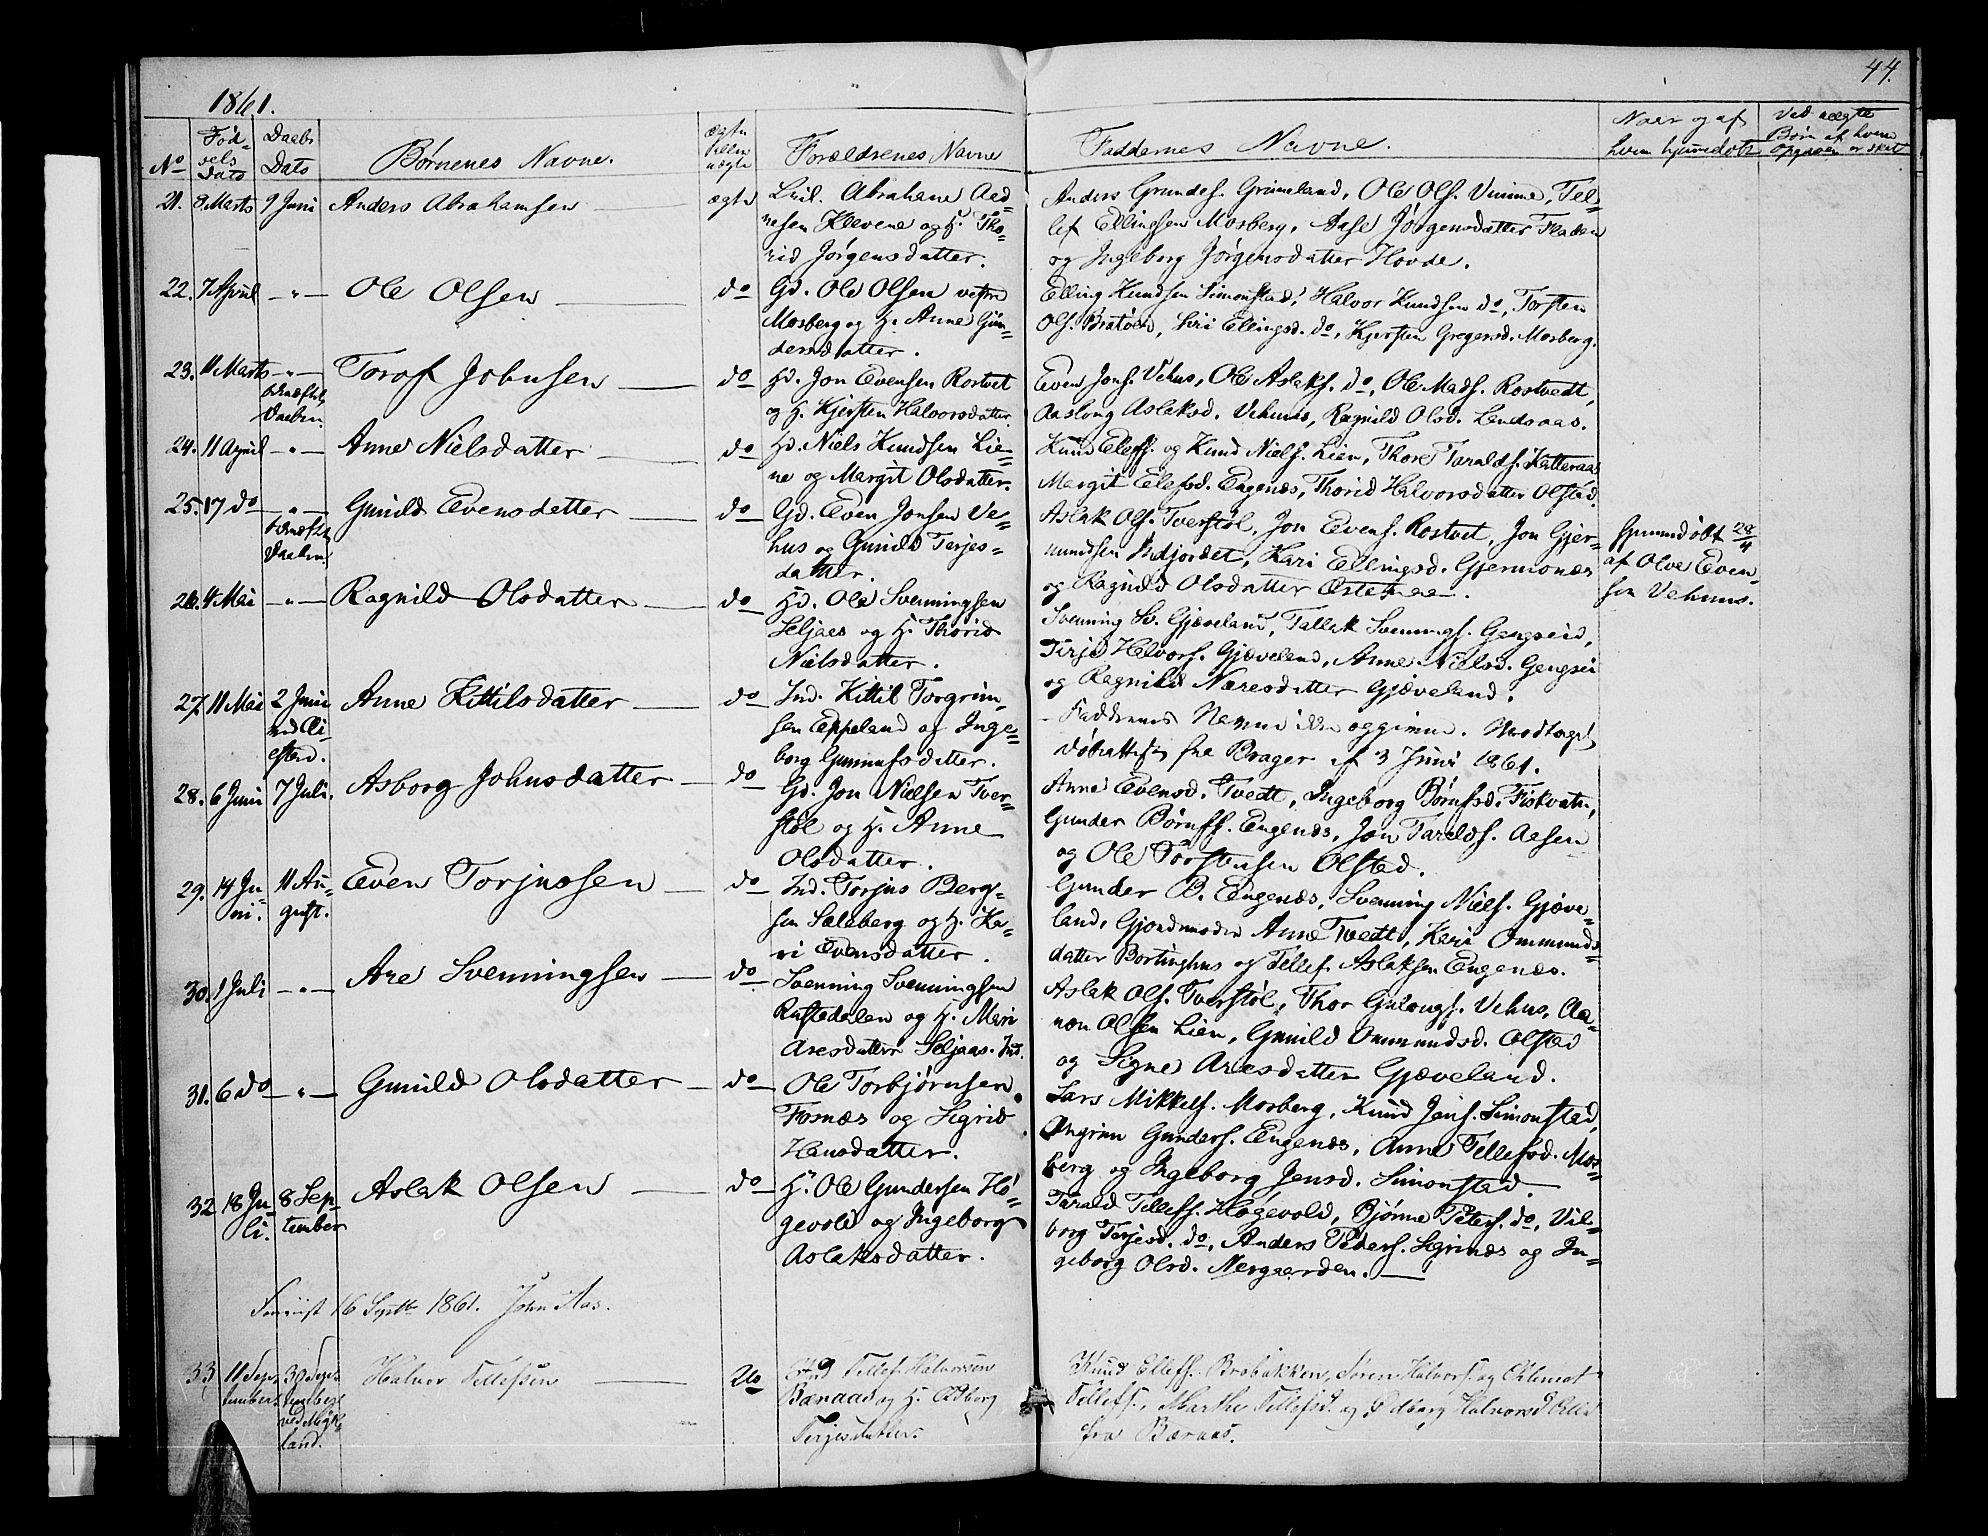 44.
1861.
No
Fødselsdato
Daabs Dato
Børnenes Navne.
ægte eller uægte
Forældrenes Navne
Faddernes Navne.
Naar og af hvem hjemmedøbt
Ved uægte Børn af hvem Opgaven er skeet
21. 8 Marts 9 Juni Anders Abrahamsen ægte
Abraham Aad-
nesen Klevene og H. Tho-
rid Jørgensdatter.
Anders Grundes. Grimeland, Ole Ols. Vimme, Tel-
lef Ellingsen Mosberg, Aase Jørgensdatter Fladen
og Ingeborg Jørgensdatter Hovde.
22. 7 April -"- Ole Olsen do
Gd. Ole Olsen vestre
Mosberg og H. Anne Gun-
dersdatter.
Elling Knudsen Simonstad, Halvor Knudsen do, Torsten
Ols. Bratøen, Siri Ellingsd. do, Kjersten Gregersd. Mosberg.
23. 11 Marts -"- Torof Johnsen do
Daaben.
Hd. Jon Evensen Rostvet
og H. Kjersten Halvorsdatter.
Even Jons. Vehus, Ole Aslaks. do, Ole Mads. Rostvedt,
Aasloug Aslaksd. Vehuus, Ragnild Olsd. Lendsaas.
24. 11 April -"- Anne Nielsdatter do
Hd. Niels Knudsen Lie-
ne og Margit Olsdatter.
Knud Eleffs. og Knud Niels. Lien, Thore Taralds. Katteraas
Margit Elefsd. Engenæs, Thorid Halvorsdatter Olstad.
25. 17 do -"- Gunild Evensdatter do
Daaben.
Gd. Even Jonsen Ve-
hus og Gunild Terjes-
datter.
Aslak Ols. Tverstøl, Jon Evens. Rostvet, Jon Gjer-
mundsen Midjordet, Kari Ellingsd. Gjermonæs
og Ragnild Olsdatter
hjemmedøbt 20/4
af Olve Even-
sen Vehuus.
26. 4 Mai -"- Ragnild Olsdatter do
Hd. Ole Svenningsen
Seljaas og H. Thorid
Nielsdatter.
Svenning Sv. Gjæveland, Tallek Svennings. Gengseid,
Terje Halvors. Gjæveland, Anne Nielsd. Gengsei
og Ragnild Næresdatter Gjæveland.
27. 11 Mai 2 Juni Anne Kittilsdatter do
Ind. Kittil Torgrim-
sen Eppeland og Inge-
borg Gunnufsdatter.
Faddernes Navne ikke opgivne. Modtaget
Døbeattest fra Præger af 3 Juni 1861.
28. 6 Juni 7 Juli. Asborg Johnsdatter do
Gd. Jon Nielsen Tver-
støl og H. Anne
Olsdatter.
Anne Evensd. Tvedt, Ingeborg Børufsd. Fiskvatn,
Gunder Børufs. Engenæs, Jon Taralds. Aasen
og Ole Torstensen Olstad.
29. 14 Ju-
ni. 11 Au-
gust. Even Torjussen do
Ind. Torjus Berg-
sen Saleberg og H. Ka-
ri Evensdatter.
Gunder B. Engenæs, Svenning Niels. Gjæve-
land, Gjordmoder Anne Tvedt, Kari Ommunds-
datter Bortinghus og Tellef Aslaksen Engenæs.
30. 1 Juli -"- Are Svenningsen do
Svenning Svenningsen
Rustedalen og H. Mari
Aresdatter Seljaas. Ind.
Aslak Ols. Tverstøl, Thor Gulougs. Vehus, Aa-
non Olsen Lien, Gunild Ommundsd. Olstad
og Signe Aresdatter Gjæveland.
31. 6 do -"- Gunild Olsdatter do
Ole Torbjørnsen
Fosnæs og Sigrid
Hansdatter.
Lars Mikkels. Mosberg, Knud Jens. Simonstad,
Ongrim Gunders. Engenæs, Anne Tellefsd. Mos-
berg og Ingeborg Jensd. Simonstad.
32 18 Ju-
li. 8 Sep-
tember Aslak Olsen do
H. Ole Gundersen Hø-
gevold og Ingeborg
Aslaksdatter.
Tarald Tellefs. Høgevold, Bjørne Peters. do, Vil-
borg Terjesd. do, Anders Peders. Sigrinæs og In-
geborg Olsd. Nergaarden.
16 Septbr 1861. John Aas.
33 11 Sep-
tember. 30 Sep-
tember
ved Mjyk-
land. Halvor Tellefsen do
Hd Tellef Halvorsen
Baraas og H. Edborg
Terjesdatter.
Knud Ellefs. Brobakken, Søren Halvors. og Chlemet
Tellefs., Marthe Tellefsd. og Edborg Halvorsd. Alle
fra Baraas.